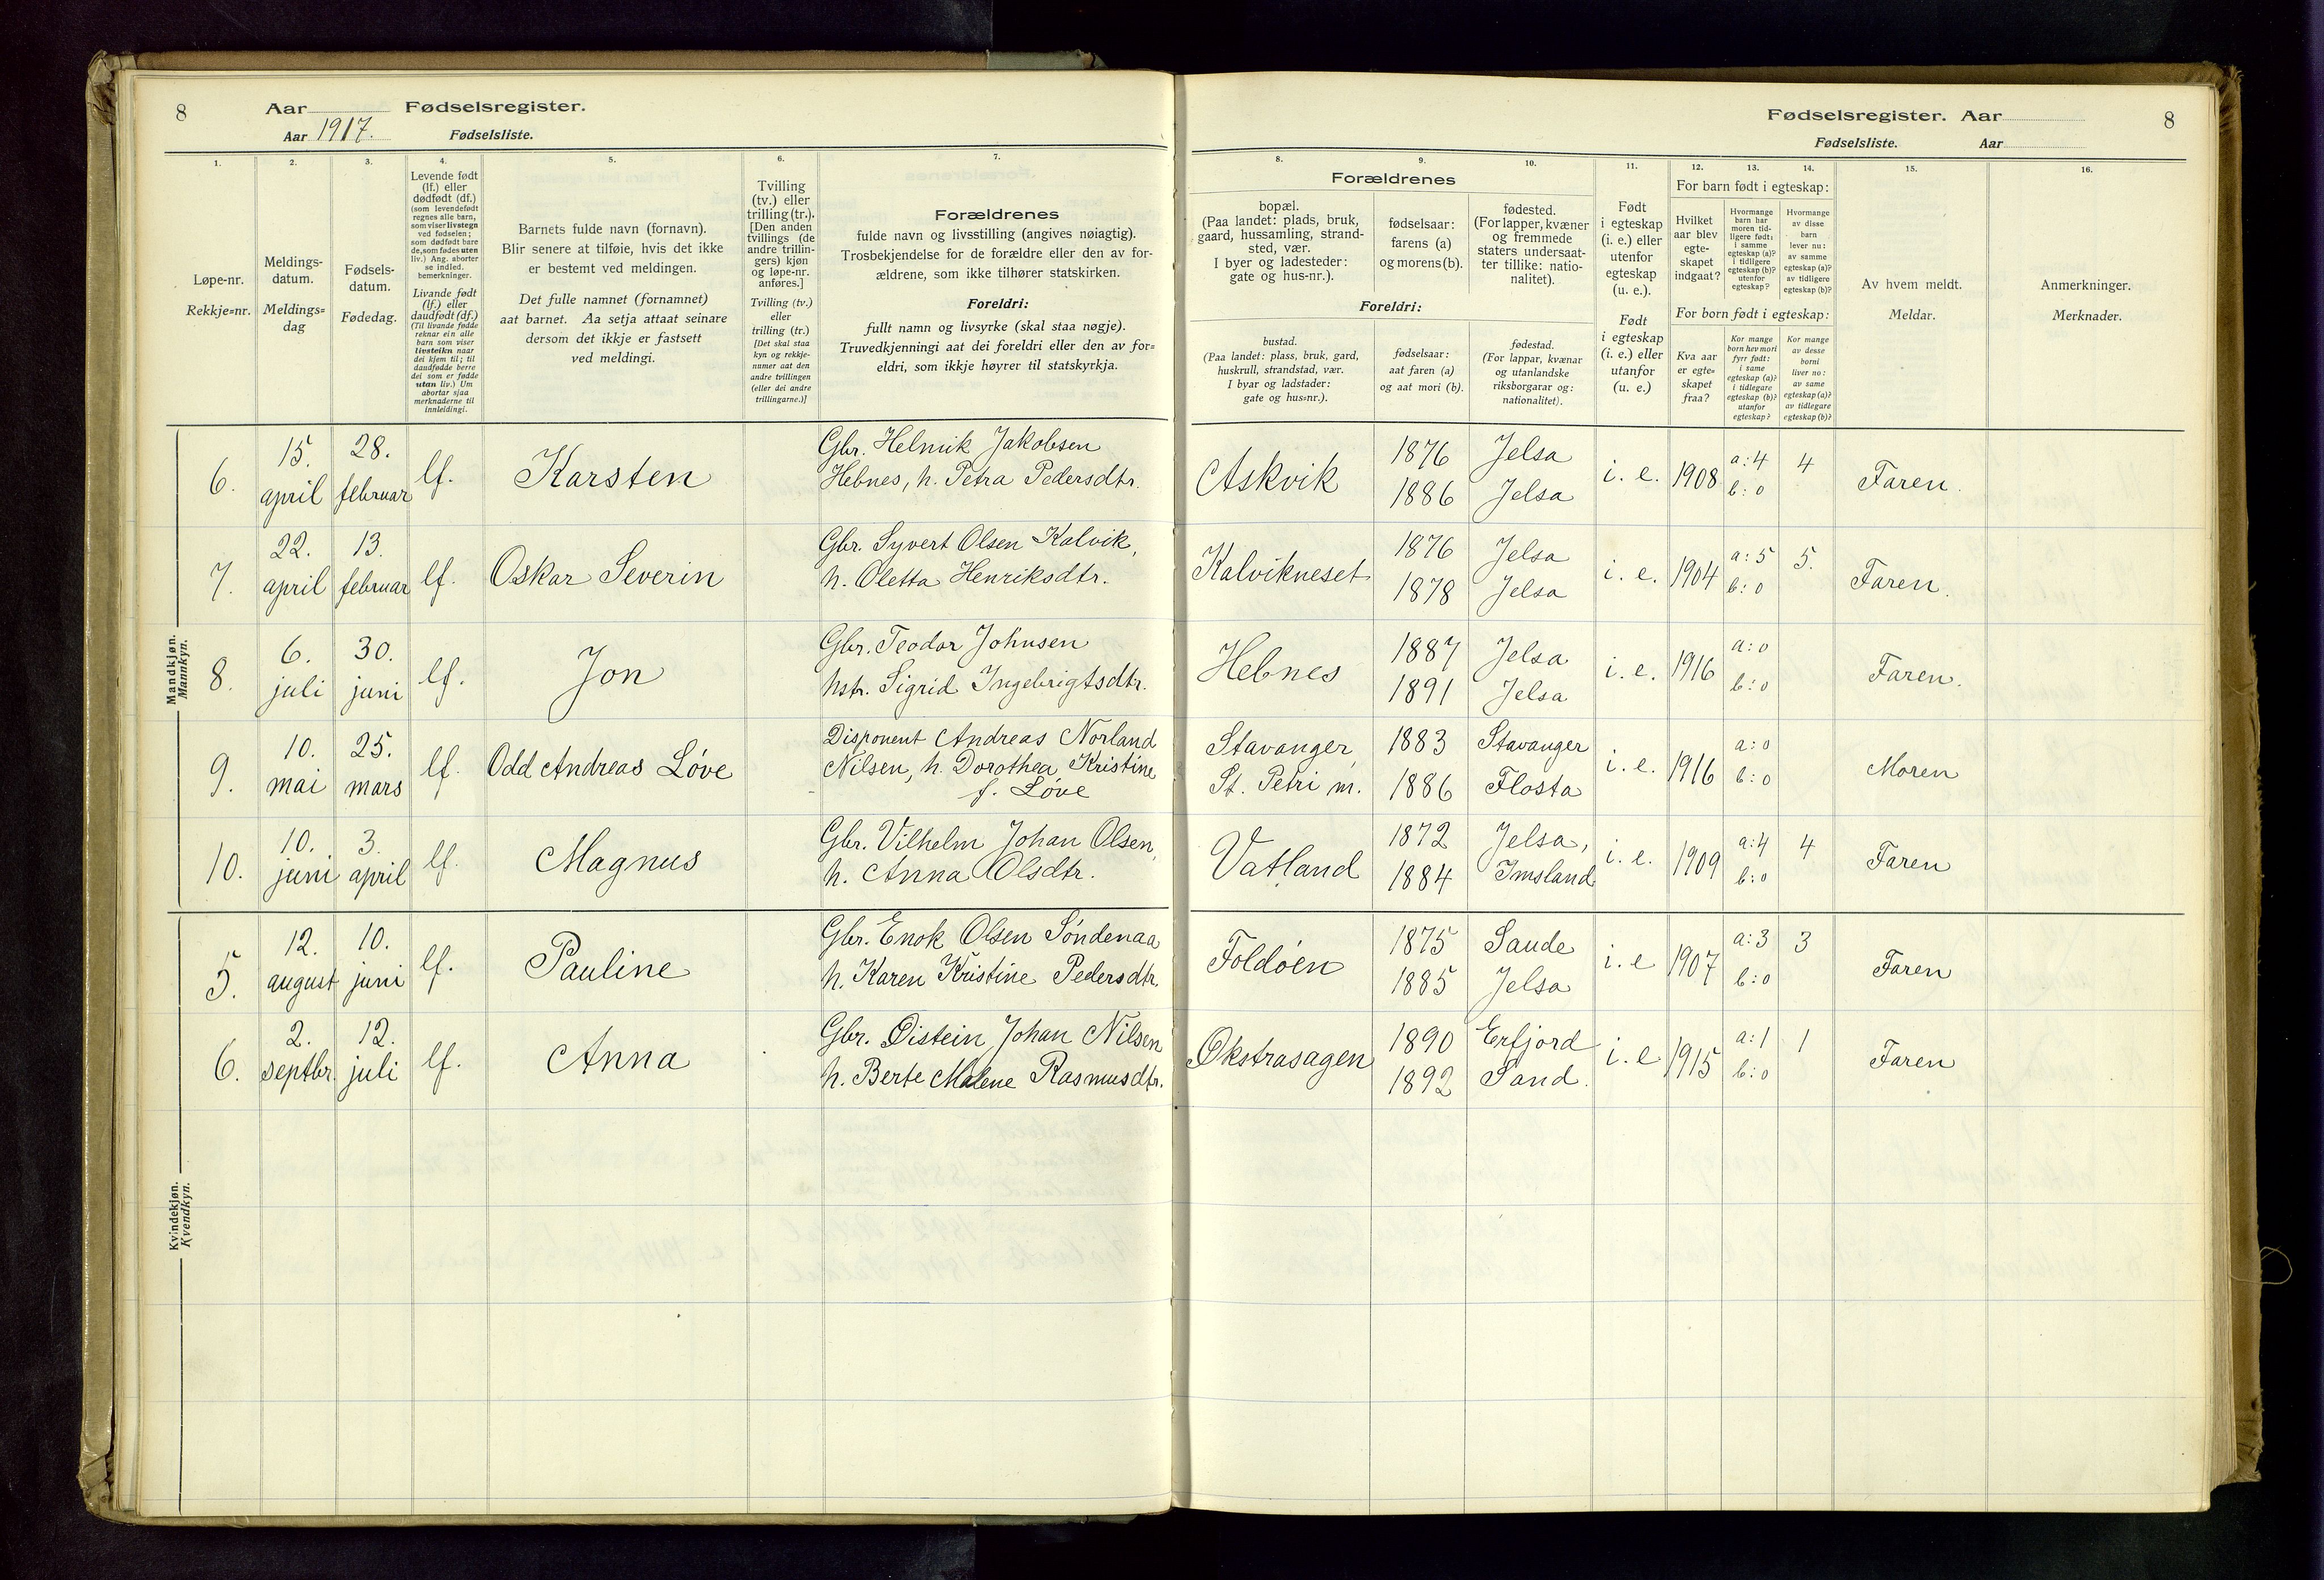 8 Aar Fødselsregister.
Aar 1917. Fødselsliste.
1. 2. 3. 4. 5. 6. 7.
Løpe-nr.
Rekkje=nr.
Meldings-
datum.
Meldings=
dag
Fødsels-
datum.
Fødedag.
Levende født
(lf.) eller
dødfødt (df.)
(som levendefødt
regnes alle barn,
som viser livstegn
ved fødselen;
som dødfødt bare
de, som fødes uten
liv.) Ang. aborter
se indled.
bemerkninger.
Livande født
(lf.) eller
daudfødt (df.)
(Til livande fødde
reknar ein alle
barn som viser
livsteikn naar
dei kjem til; til
daudfødde berre
dei som er fødde
utan liv.) Um
abortar sjaa
merknaderne til
innleidingi.
Barnets fulde navn (fornavn).
Blir senere at tilføie, hvis det ikke
er bestemt ved meldingen.
Det fulle namnet (fornamnet)
aat barnet. Aa setja attaat seinare
dersom det ikkje er fastsett
ved meldingi.
Tvilling
(tv.) eller
trilling (tr.).
[Den anden
tvillings (de
andre trillin-
gers) kjøn
og løpe-nr.
anføres.]
Tvilling (tv.)
eller
trilling (tr.)
[Det skal staa
kyn og rekkje-
numer aat den
andre tvillingen
(eller dei andre
trillingarne.)]
Forældrenes
fulde navn og livsstilling (angives nøiagtig).
Trosbekjendelse for de forældre eller den av for-
ældrene, som ikke tilhører statskirken.
Foreldri:
fullt namn og livsyrke (skal staa nøgje).
Truvedkjenningi aat dei foreldri eller den av for=
eldri, som ikkje høyrer til statskyrkja.
Fødselsregister. Aar 8
Fødselsliste. Aar
8. 9. 10. 11. 12. 13. 14. 15. 16.
Forældrenes
bopæl.
(Paa landet: plads, bruk,
gaard, hussamling, strand-
sted, vær.
I byer og ladesteder:
gate og hus-nr.).
fødselsaar:
farens (a)
og morens (b).
fødested.
(For lapper, kvæner
og fremmede
staters undersaat-
ter tillike: natio-
nalitet).
Foreldri:
bustad.
(Paa landet: plass, bruk, gard,
huskrull, strandstad, vær.
I byar og ladstader:
gate og hus=nr.).
fødselsaar:
aat faren (a)
og aat mori (b).
fødestad.
(For lappar, kvænar
og utanlandske
riksborgarar og:
nationalitet).
Født
i egteskap
(i. e.) eller
utenfor
egteskap
(u. e.).
Født
i egteskap
(i. e.) eller
utanfor
(u. e.)
For barn født i egteskap:
Hvilket
aar blev
egte-
skapet
indgaat?
Hvormange
barn har
moren tid-
ligere født:
i samme
egteskap (a)?
i tidligere
egteskap (b)?
utenfor
egteskap?
Hvormange
av disse
barn
lever nu:
av samme
egteskap (a)?
av tidligere
egteskap (b)?
For born født i egteskap:
Kva aar
er egte=
skapet
fraa?
Kor mange
born hev mori
fyrr født:
i same
egteskap (a)?
i tidlegare
egteskap (b)?
utanfor
egteskap?
Kor mange
av desse
borni
liver no:
av same
egteskap (a)?
av tidlegare
egteskap (b)?
Av hvem meldt.
Meldar.
Anmerkninger.
Merknader.
Mandkjøn.
Mannkyn.
6. 15. april 28. februar lf. Karsten
Gbr. Helmik Jakobsen
Hebnes, h. Petra Pedersdtr.
Askvik 1876 Jelsa i. e. 1908 a: 4 4 Faren.
1886 Jelsa b: 0
7. 22. april 13. februar lf. Oskar Severin
Gbr. Syvert Olsen Kalvik,
h. Oletta Henriksdtr.
Kalvikneset 1876 Jelsa i. e. 1904 a: 5 5. Faren.
1878 Jelsa b: 0
8. 6. juli 30. juni lf. Jon
Gbr. Teodor Johnsen
hstr. Sigrid Ingebrigtsdtr.
Hebnes 1887 Jelsa i. e. 1916 a: 0 Faren.
1891 Jelsa b: 0
9. 10. mai 25. mars lf. Odd Andreas Löve
Disponent Andreas Norland
Nilsen, h. Dorothea Kristine
f. Löve
Stavanger, 1883 Stavanger i. e. 1916 a: 0 Moren
St. Petri m. 1886 Flosta b: 0
10. 10. juni 3. april lf. Magnus
Gbr. Vilhelm Johan Olsen,
h. Anna Olsdtr.
Vatland 1872 Jelsa, i. e. 1909 a: 4 4 Faren
1884 Imsland b: 0
Kvindekjøn.
Kvendkyn.
5. 12. august 10. juni lf. Pauline
Gbr. Enok Olsen Söndenaa
h. Karen Kristine Pedersdtr.
Foldöen 1875 Saude i. e 1907 a: 3 3 Faren
1885 Jelsa b: 0
6. 2. septbr. 12. juli lf. Anna
Gbr. Øistein Johan Nilsen
h. Berte Malene Rasmusdtr.
Økstrasagen 1890 Erfjord i. e 1915 a: 1 1 Faren
1892 Sand. b: 0